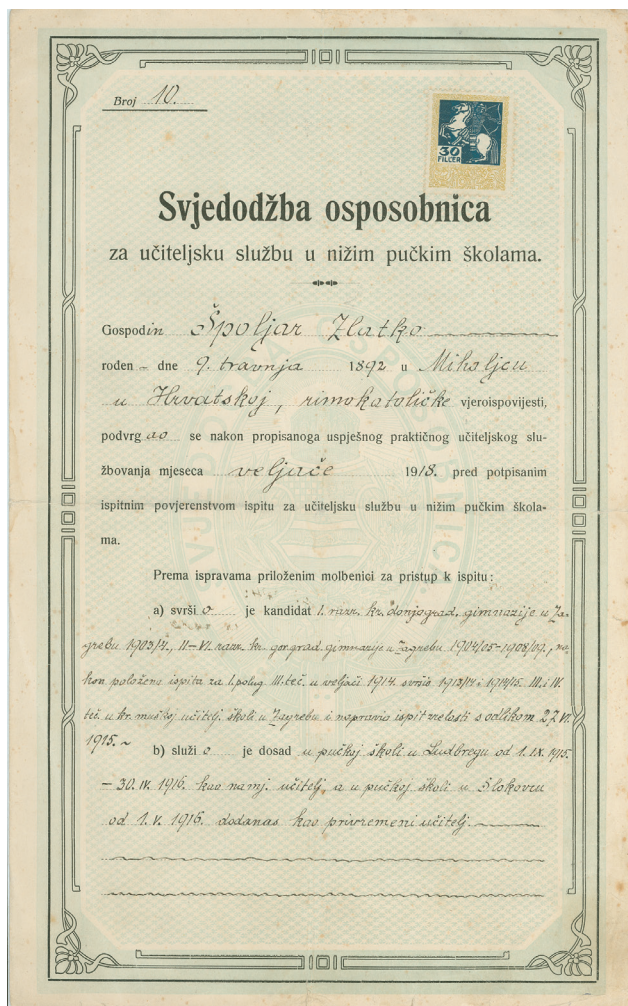 Broj 10.
30
FILLÉR
Svjedodžba osposobnica
za učiteljsku službu u nižim pučkim školama.
Gospodin Špoljar Zlatko
rođen – dne 9. travnja 1892 u Miholjcu
u Hrvatskoj, rimokatoličke vjeroispovijesti,
podvrgao se nakon propisanoga uspješnog praktičnog učiteljskog slu-
žbovanja mjeseca veljače 1918. pred potpisanim
ispitnim povjerenstvom ispitu za učiteljsku službu u nižim pučkim škola-
ma.
Prema ispravama priloženim molbenici za pristup k ispitu:
a) svršio je kandidat I. razr. kr. donjograd. gimnazije u Za-
grebu 1903/4., II–VI. razr. kr. gor. grad gimnazije u Zagrebu 1904/05–1908/09., na-
kon položena ispita za I. polug. III. teč. u veljači 1914. svršio 1913/14 i 1914/15. III. i IV.
teč. u kr. muškoj učitelj. školi u Zagrebu i napravio ispit zrelosti s odlikom 27. VI.
1915. ~
b) služio je dosad u pučkoj školi u Ludbregu od 1. IX. 1915.
– 30. IV. 1916. kao namj. učitelj, a u pučkoj školi u Slokovcu
od 1. V. 1916. dodanas kao privremeni učitelj.